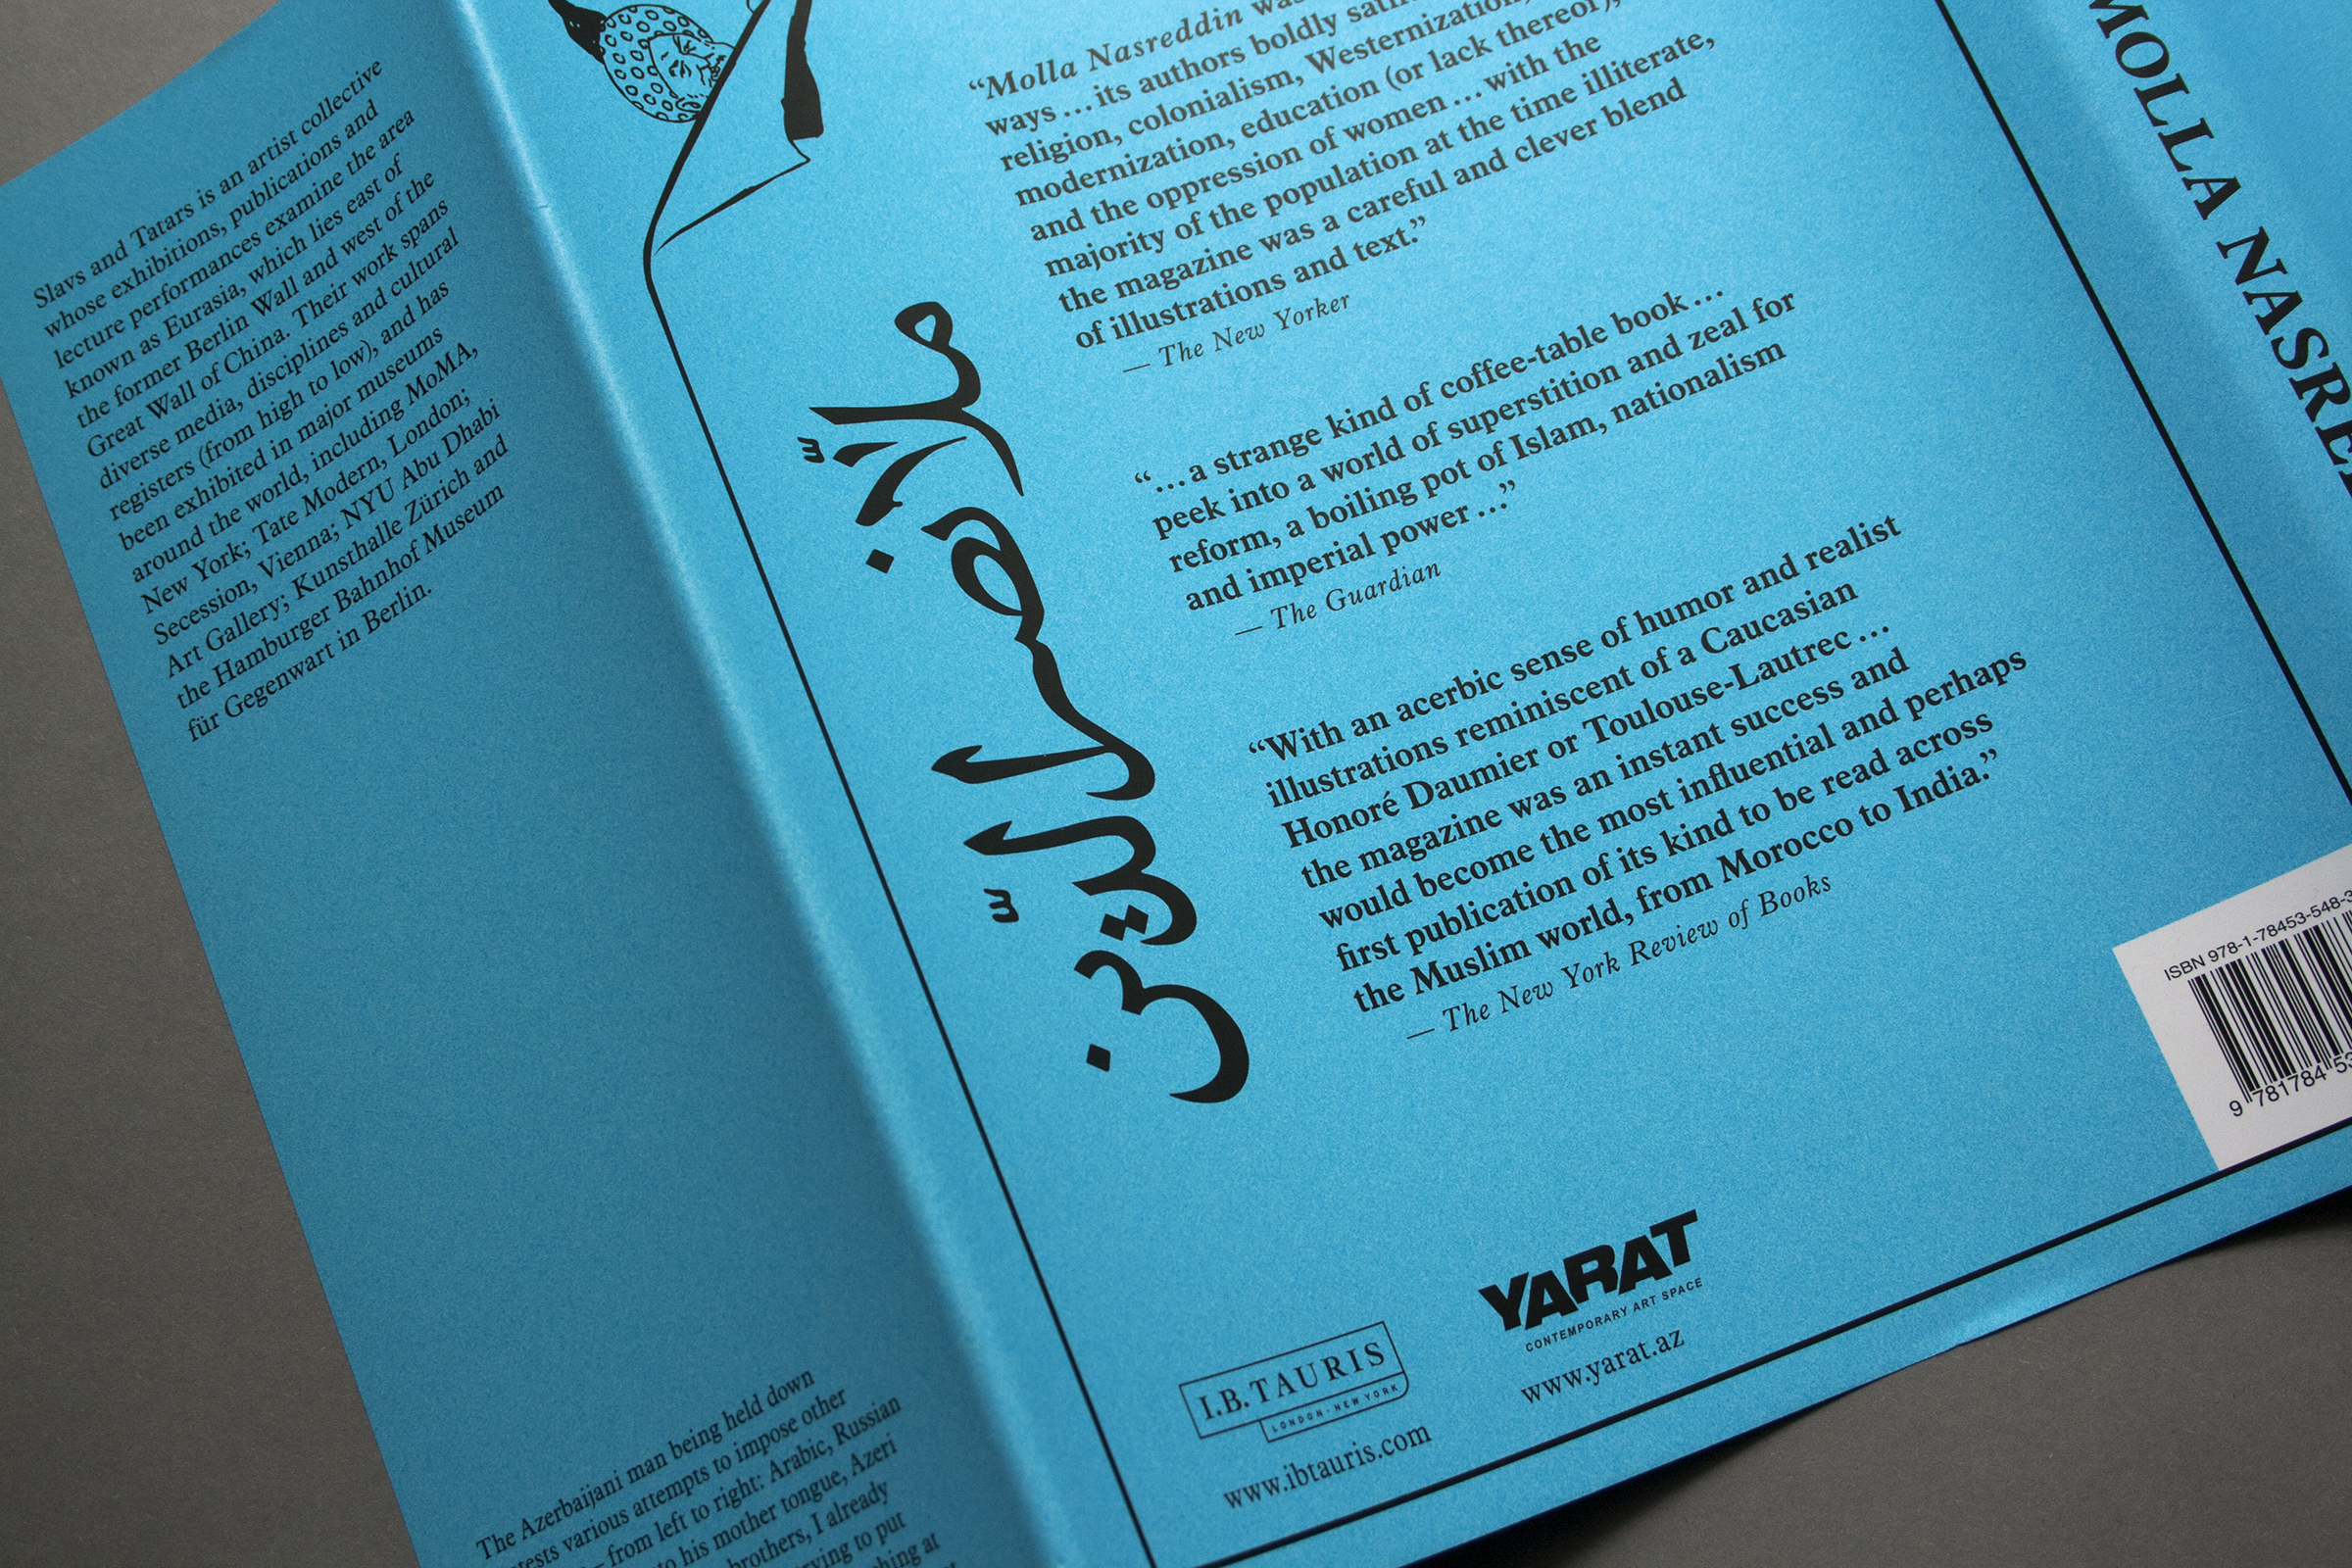 Slavs and Tatars is an artist collective
whose exhibitions, publications and
lecture performances examine the area
known as Eurasia, which lies east of
the former Berlin Wall and west of the
Great Wall of China. Their work spans
diverse media, disciplines and cultural
registers (from high to low), and has
been exhibited in major museums
around the world, including MoMA,
New York; Tate Modern, London;
Secession, Vienna; NYU Abu Dhabi
Art Gallery; Kunsthalle Zürich and
the Hamburger Bahnhof Museum
für Gegenwart in Berlin.
The Azerbaijani man being held down
various attempts to impose other
– from left to right: Arabic, Russian
to his mother tongue, Azeri
brothers, I already
to put
at
ملّا نصر الدّين
“Molla Nasreddin was
ways … its authors boldly
religion, colonialism, Westernization,
modernization, education (or lack thereof),
and the oppression of women … with the
majority of the population at the time illiterate,
the magazine was a careful and clever blend
of illustrations and text.”
— The New Yorker
“… a strange kind of coffee-table book …
peek into a world of superstition and zeal for
reform, a boiling pot of Islam, nationalism
and imperial power …”
— The Guardian
“With an acerbic sense of humor and realist
illustrations reminiscent of a Caucasian
Honoré Daumier or Toulouse-Lautrec …
the magazine was an instant success and
would become the most influential and perhaps
first publication of its kind to be read across
the Muslim world, from Morocco to India.”
— The New York Review of Books
I.B.TAURIS
LONDON · NEW YORK
www.ibtauris.com
YARAT
CONTEMPORARY ART SPACE
www.yarat.az
ISBN 978-1-78453-548-3
9 781784 53
MOLLA